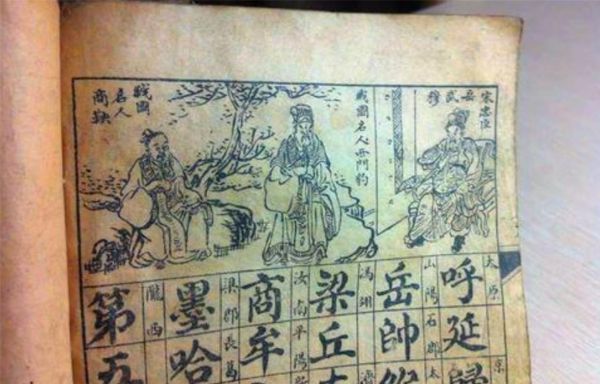 宋忠臣
岳武穆
戰國名人西門豹
戰國
名人
商鞅
太原
呼延歸
山陽石郡太
岳帥
馮翊
梁丘
汝南平陽
商牟
梁郡長葛
墨哈
隴西
第五